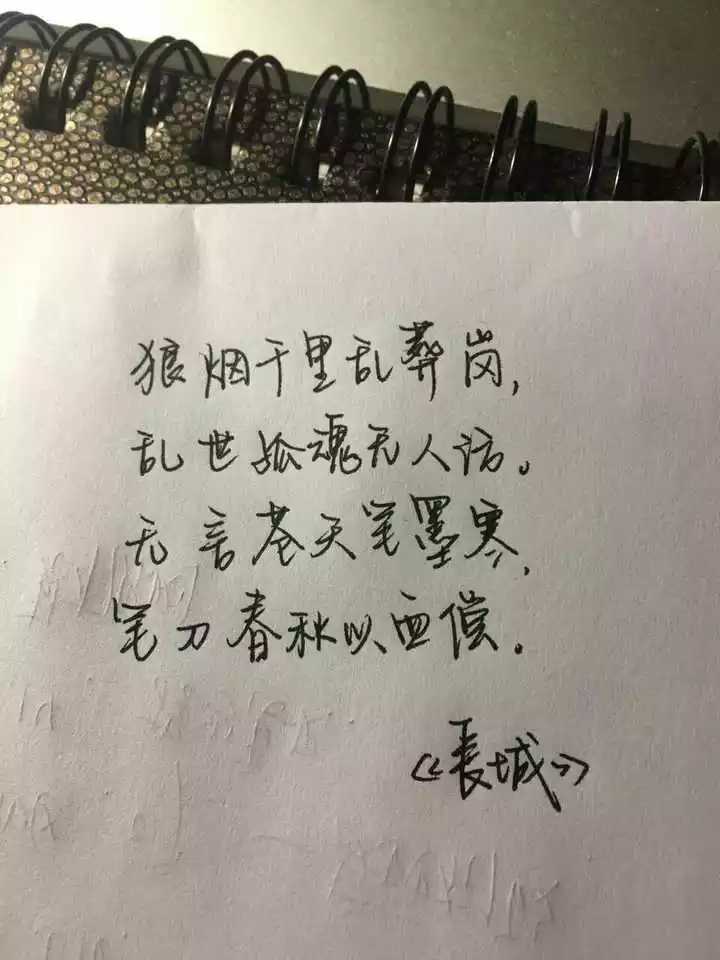 狼烟千里乱葬岗,
乱世孤魂无人访。
无言苍天笔墨寒,
笔刀春秋以血偿。
《長城》